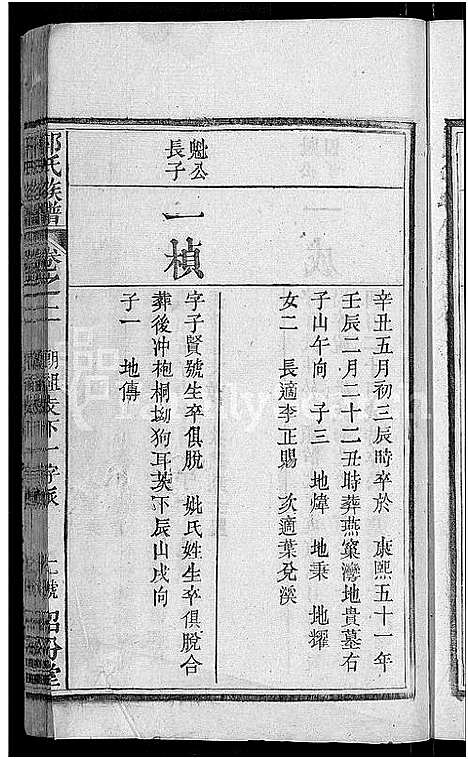 辛丑五月初三辰時卒於 康熙五十一年
壬辰二月二十二丑時葬燕窠灣地貴墓右
子山午向 子三 地煒 地秉 地耀
女二 長適李正賜 次適葉兌溪
魁公
長子
一楨
字子賢號生卒俱脫 妣氏姓生卒俱脫合
葬後冲枹桐坳狗耳芡下辰山戌向
子一 地傳
氏族譜
卷之二
朝祖表下一字派